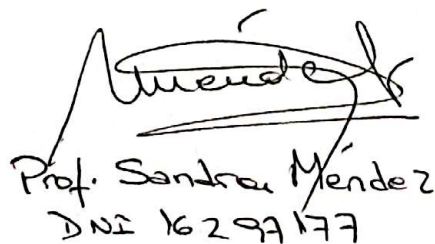 Méndez S
Prof. Sandra Méndez
DNI 16297177